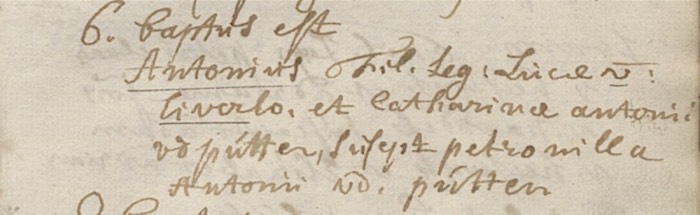 6. baptus est
Antonius Fil. leg: Lucæ v:
liverlo. et Catharinæ antonii
vd putten, suscept petronilla
Antonii vd. putten